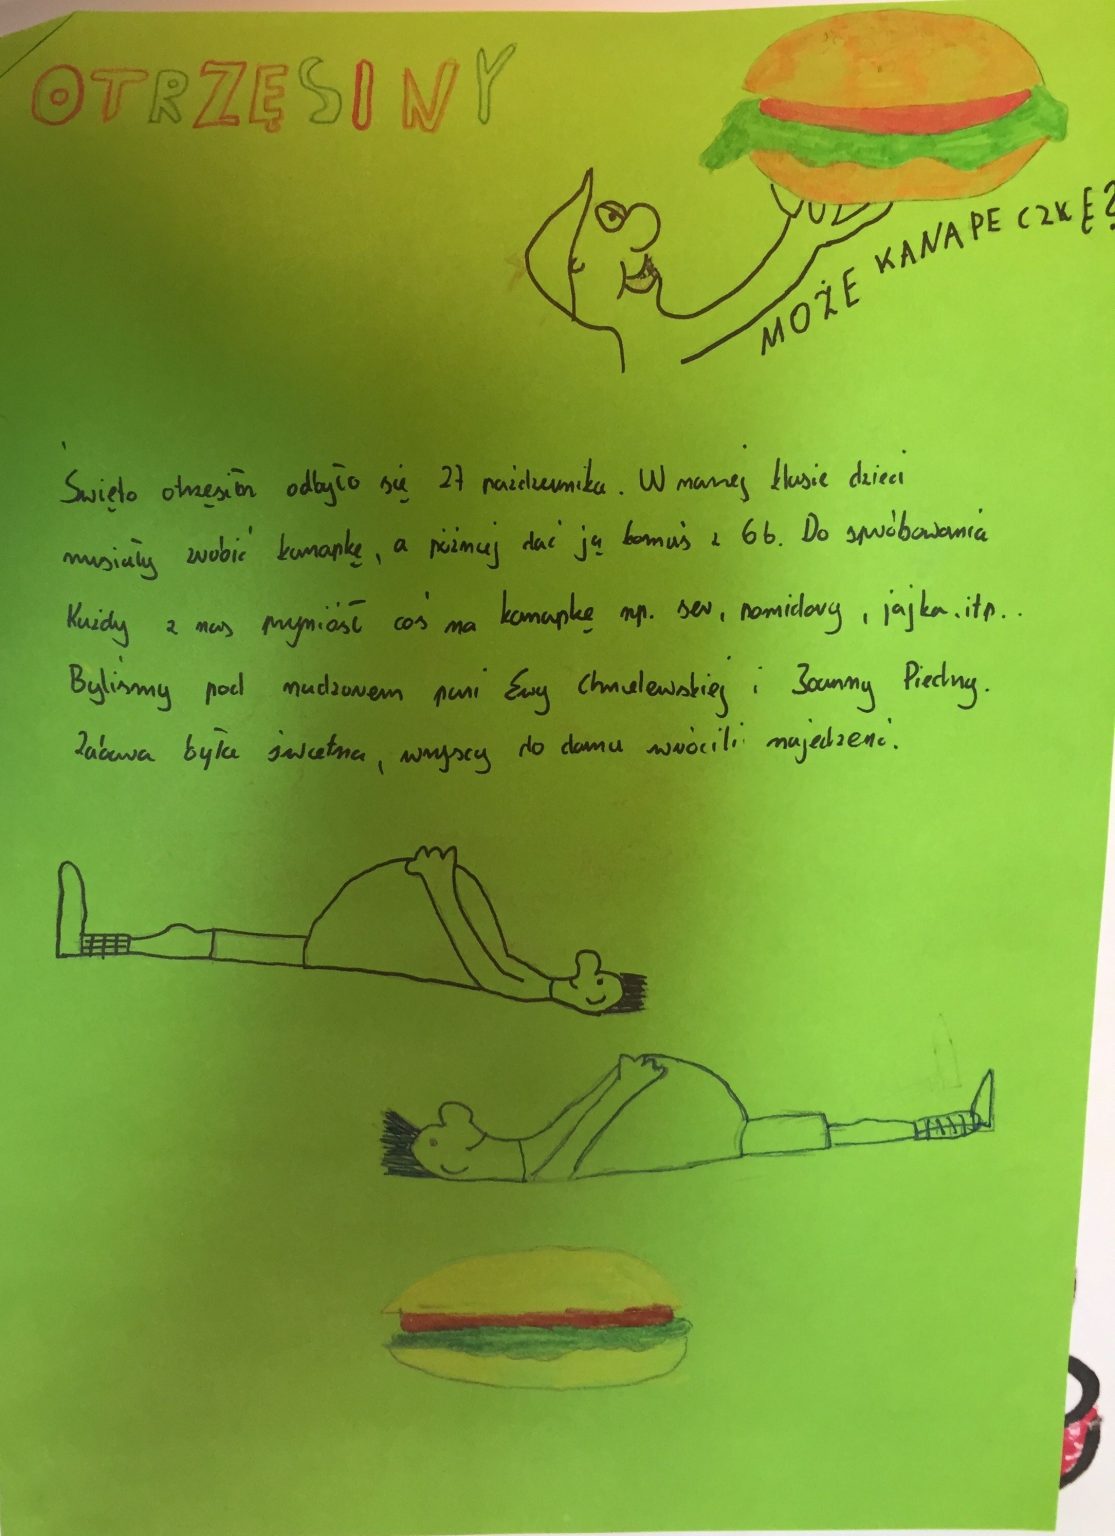 OTRZĘSINY
MOŻE KANAPECZKĘ?
Święto otrzęsin odbyło się 27 października. W naszej klasie dzieci
musiały zrobić kanapkę, a później dać ją komuś z 6b. Do spróbowania
Każdy z nas przyniósł coś na kanapkę np. ser, pomidory, jajka. itp..
Byliśmy pod nadzorem pani Ewy Chmielewskiej i Joanny Piedny.
Zabawa była świetna, wszyscy do domu wrócili najedzeni.